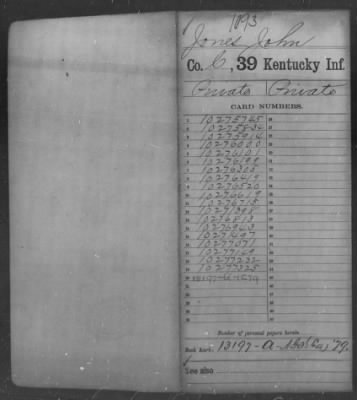 1093
Jones John
Co. C, 39 Kentucky Inf.
Private | Private
CARD NUMBERS.
1 10275745
2 10275834
3 10275914
4 10276000
5 10276101
6 10276199
7 10276305
8 10276419
9 10276520
10 10276619
11 10276715
12 10271398
13 10276813
14 10276963
15 10271697
16 10277071
17 10277169
18 10277232
19 10277325
20
Number of personal papers herein
Book Mark: 13197-A-
See also